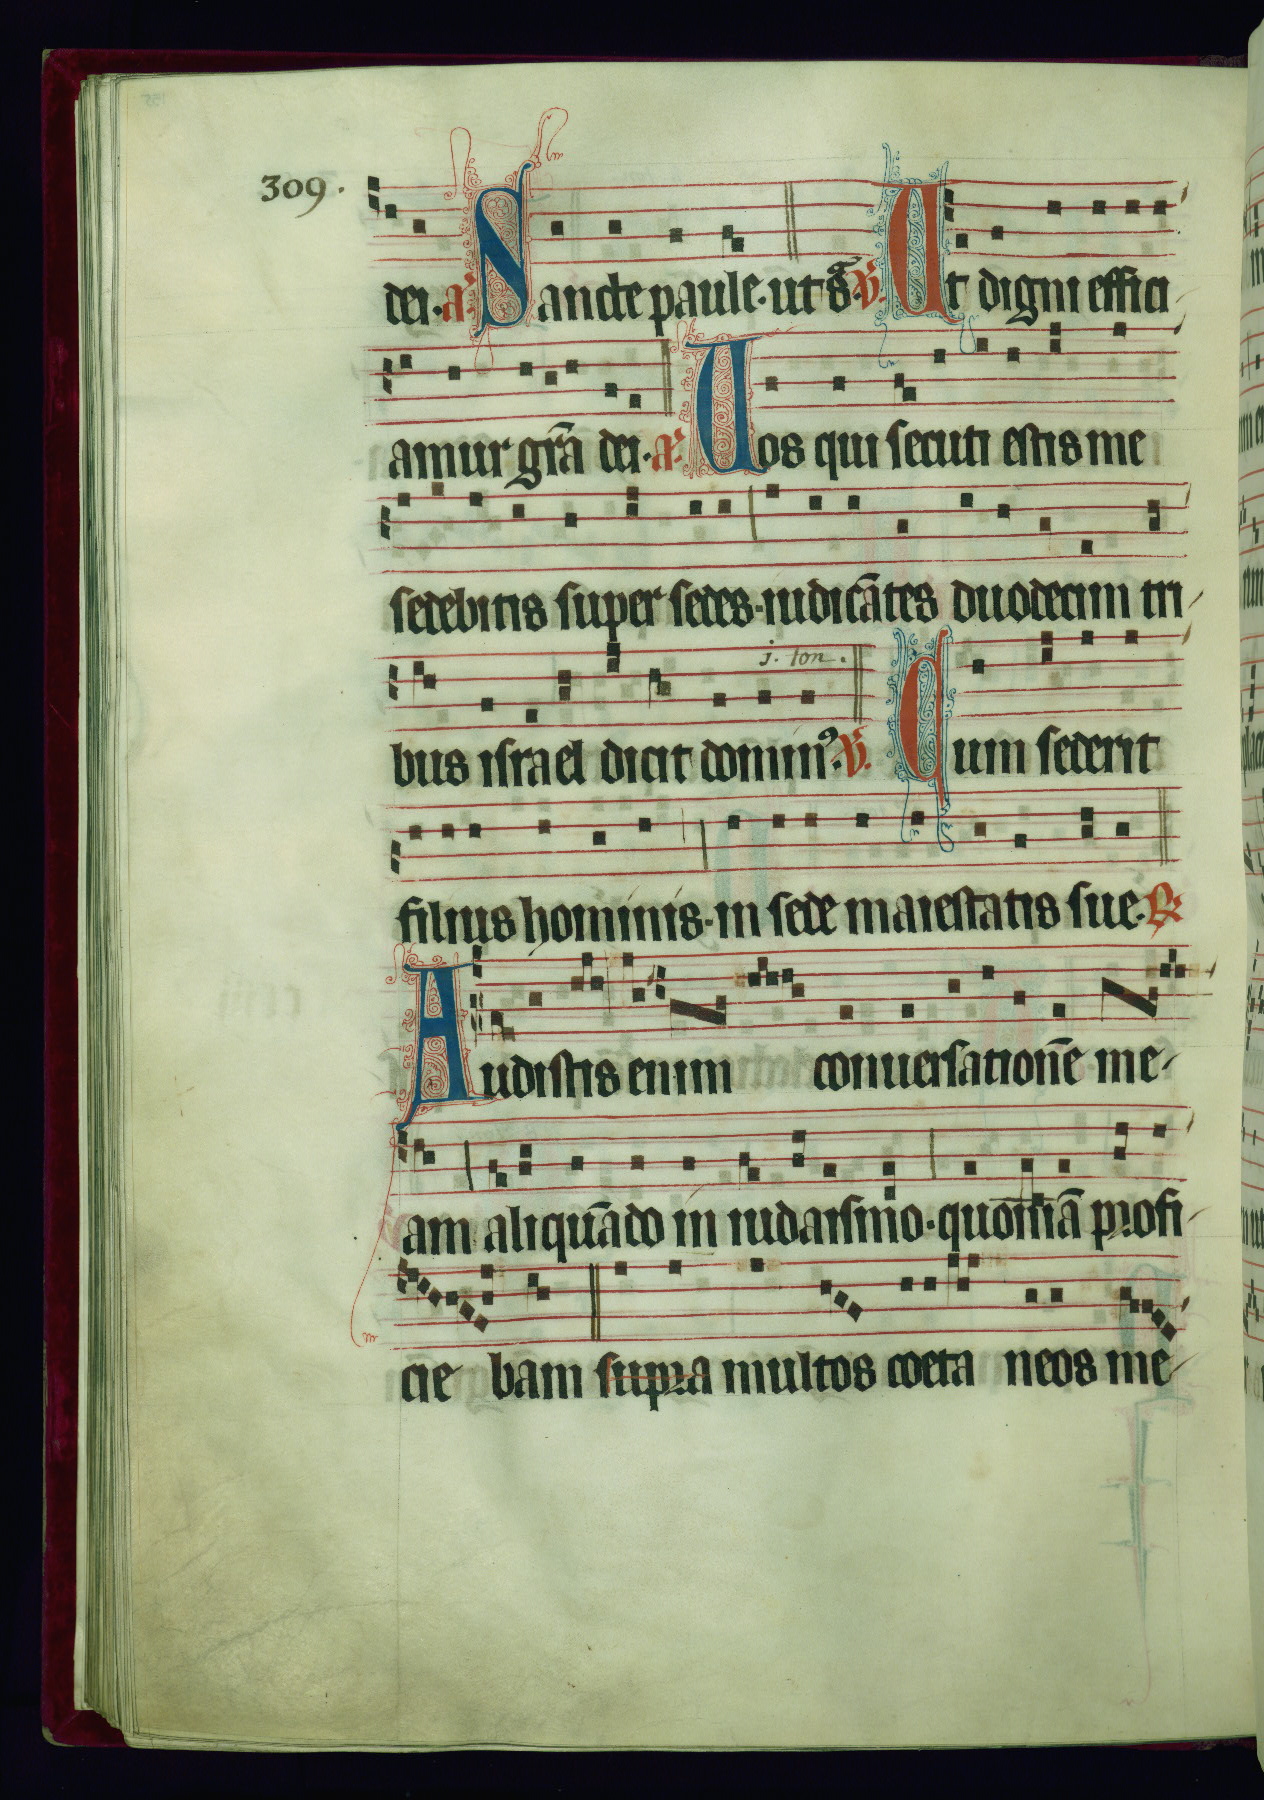 309.
dei. a. Sancte paule. ut sa. v. Ut digni effici
amur grā dei. a. Uos qui secuti estis me
sedebitis super sedes. iudicātes duodecim tri-
j. ton.
bus israel dicit domin⁹. v. Cum sederit
filius hominis. in sede maiestatis sue. R.
Audistis enim conuersationē me-
am aliquādo in iudaismo. quoniā profi-
cie bam supra multos coeta neos me-